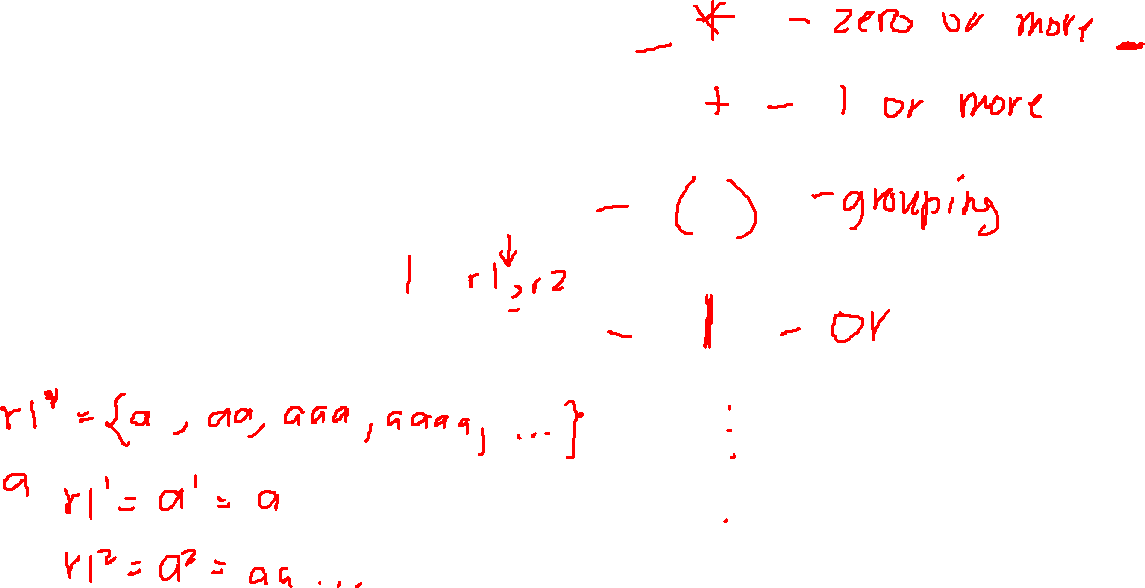 * - zero or more
+ - 1 or more
- ( ) - grouping
| r1, r2
- | - or
r1* = {a, aa, aaa, aaaa, ...}
a r1¹ = a¹ = a
r1² = a² = aa ...